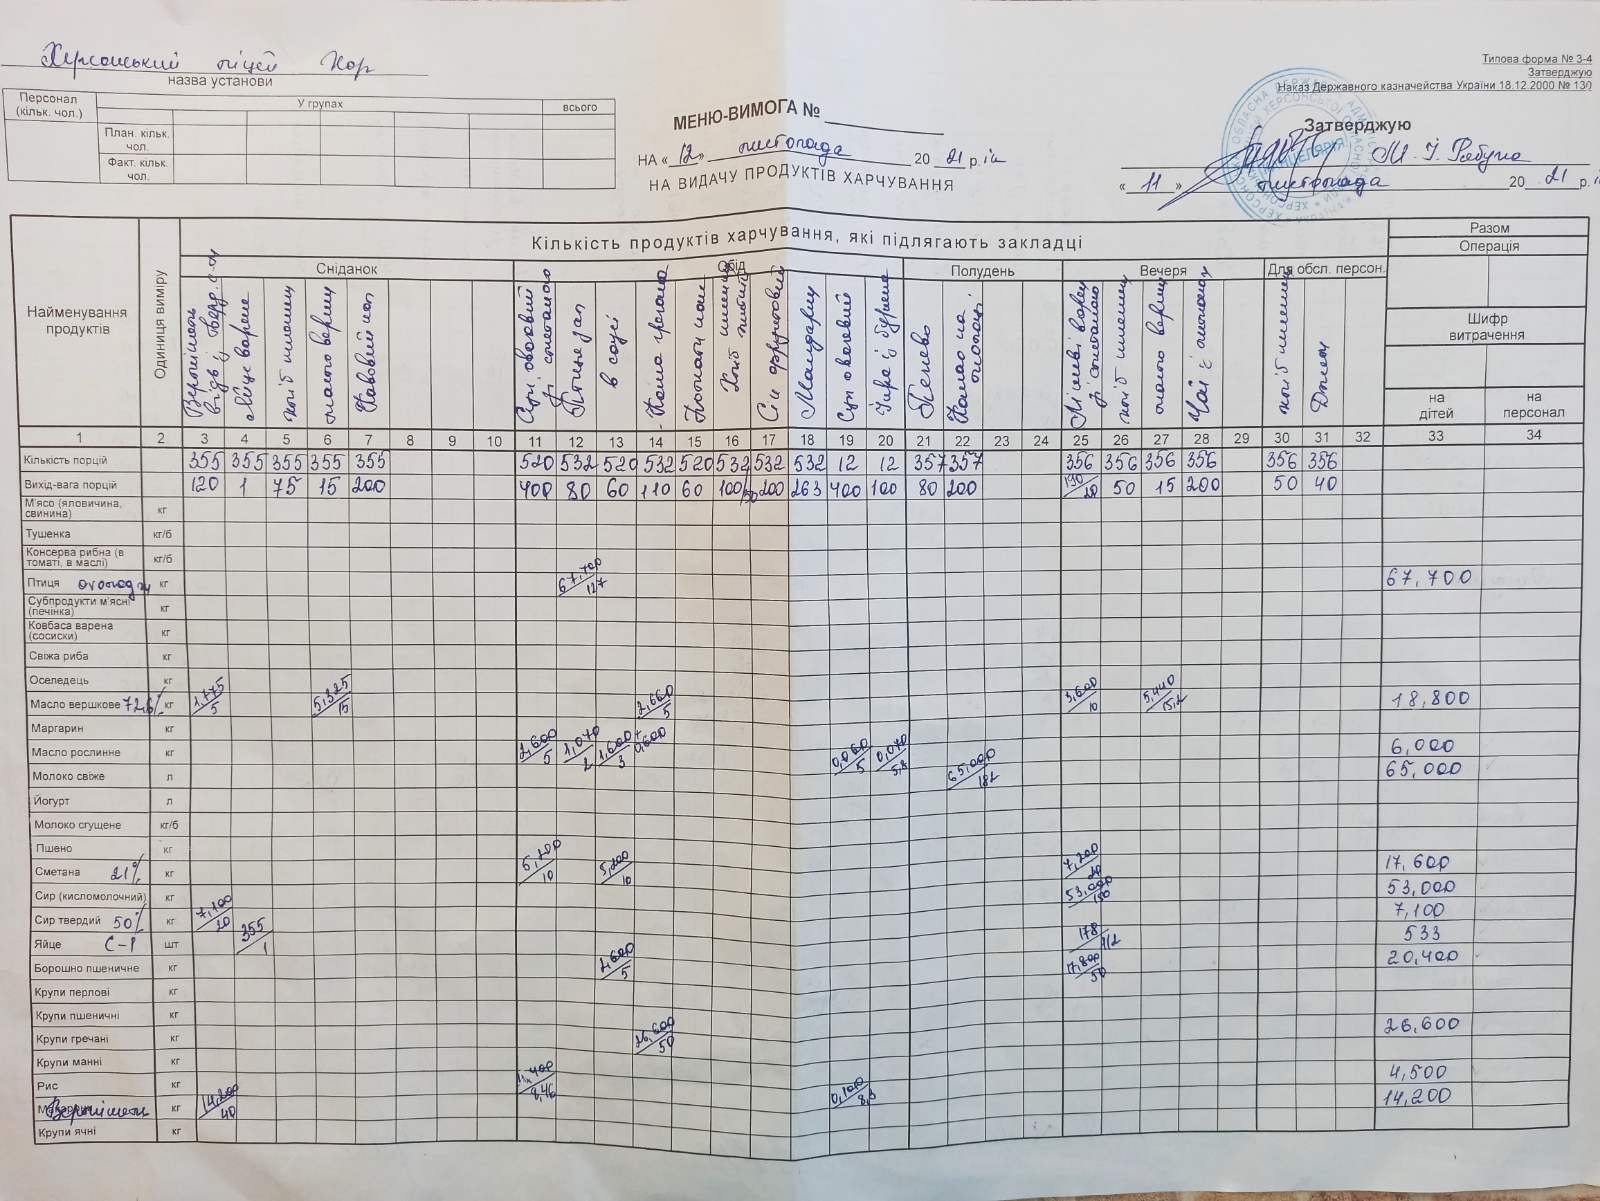 Херсонський ліцей
назва установи
Типова форма № З-4
Затверджую
Наказ Державного казначейства України 18.12.2000 № 130
Персонал (кільк. чол.) У групах всього
План. кільк. чол.
Факт. кільк. чол.
МЕНЮ-ВИМОГА №
НА «12» листопада 2021 р.
НА ВИДАЧУ ПРОДУКТІВ ХАРЧУВАННЯ
Затверджую
«11» листопада 2021 р.
Найменування продуктів
Одиниця виміру
Кількість продуктів харчування, які підлягають закладці
Разом
Операція
Шифр витрачення
на дітей на персонал
Сніданок Обід Полудень Вечеря Для обсл. персон.
Вермішель відв. із тверд.
Яйце варене
хліб пшениц
масло верш
Кавовий нап
Суп овочевий зі сметаною
Птиця зап
в соусі
Каша гречана
Хліб пшениц житн
Сік фруктовий
Мандарин
Суп овочевий
Ікра із буряка
Печиво
Какао на молоці
Ліниві варен зі сметаною
хліб пшениц
масло верш
Чай із лимоном
хліб пшенич
Джем
1 2 3 4 5 6 7 8 9 10 11 12 13 14 15 16 17 18 19 20 21 22 23 24 25 26 27 28 29 30 31 32 33 34
Кількість порцій 355 355 355 355 355 520 532 520 532 520 532 532 532 12 12 357 357 356 356 356 356 356 356
Вихід-вага порцій 120 1 75 15 200 400 80 60 110 60 100/50 200 263 400 100 80 200 190/20 50 15 200 50 40
М'ясо (яловичина, свинина) кг
Тушенка кг/б
Консерва рибна (в томаті, в маслі) кг/б
Птиця кг 67,700/127 67,700
Субпродукти м'ясні (печінка) кг
Ковбаса варена (сосиски) кг
Свіжа риба кг
Оселедець кг
Масло вершкове 72,6% кг 1,775/5 5,325/15 2,660/5 3,600/10 5,440/15,2 18,800
Маргарин кг
Масло рослинне кг 2,600/5 1,070/2 1,600/3 0,600 0,060/5 0,070/5,8 6,000
Молоко свіже л 65,000/182 65,000
Йогурт л
Молоко сгущене кг/б
Пшено кг
Сметана 21% кг 5,200/10 5,200/10 7,200/20 17,600
Сир (кисломолочний) кг 53,000/150 53,000
Сир твердий 50% кг 7,100/20 7,100
Яйце С-1 шт 355/1 178/1/2 533
Борошно пшеничне кг 2,600/5 17,800/50 20,400
Крупи перлові кг
Крупи пшеничні кг
Крупи гречані кг 26,600/50 26,600
Крупи манні кг
Рис кг 4,400/8,46 0,100/8,3 4,500
Вермішель кг 14,200/40 14,200
Крупи ячні кг